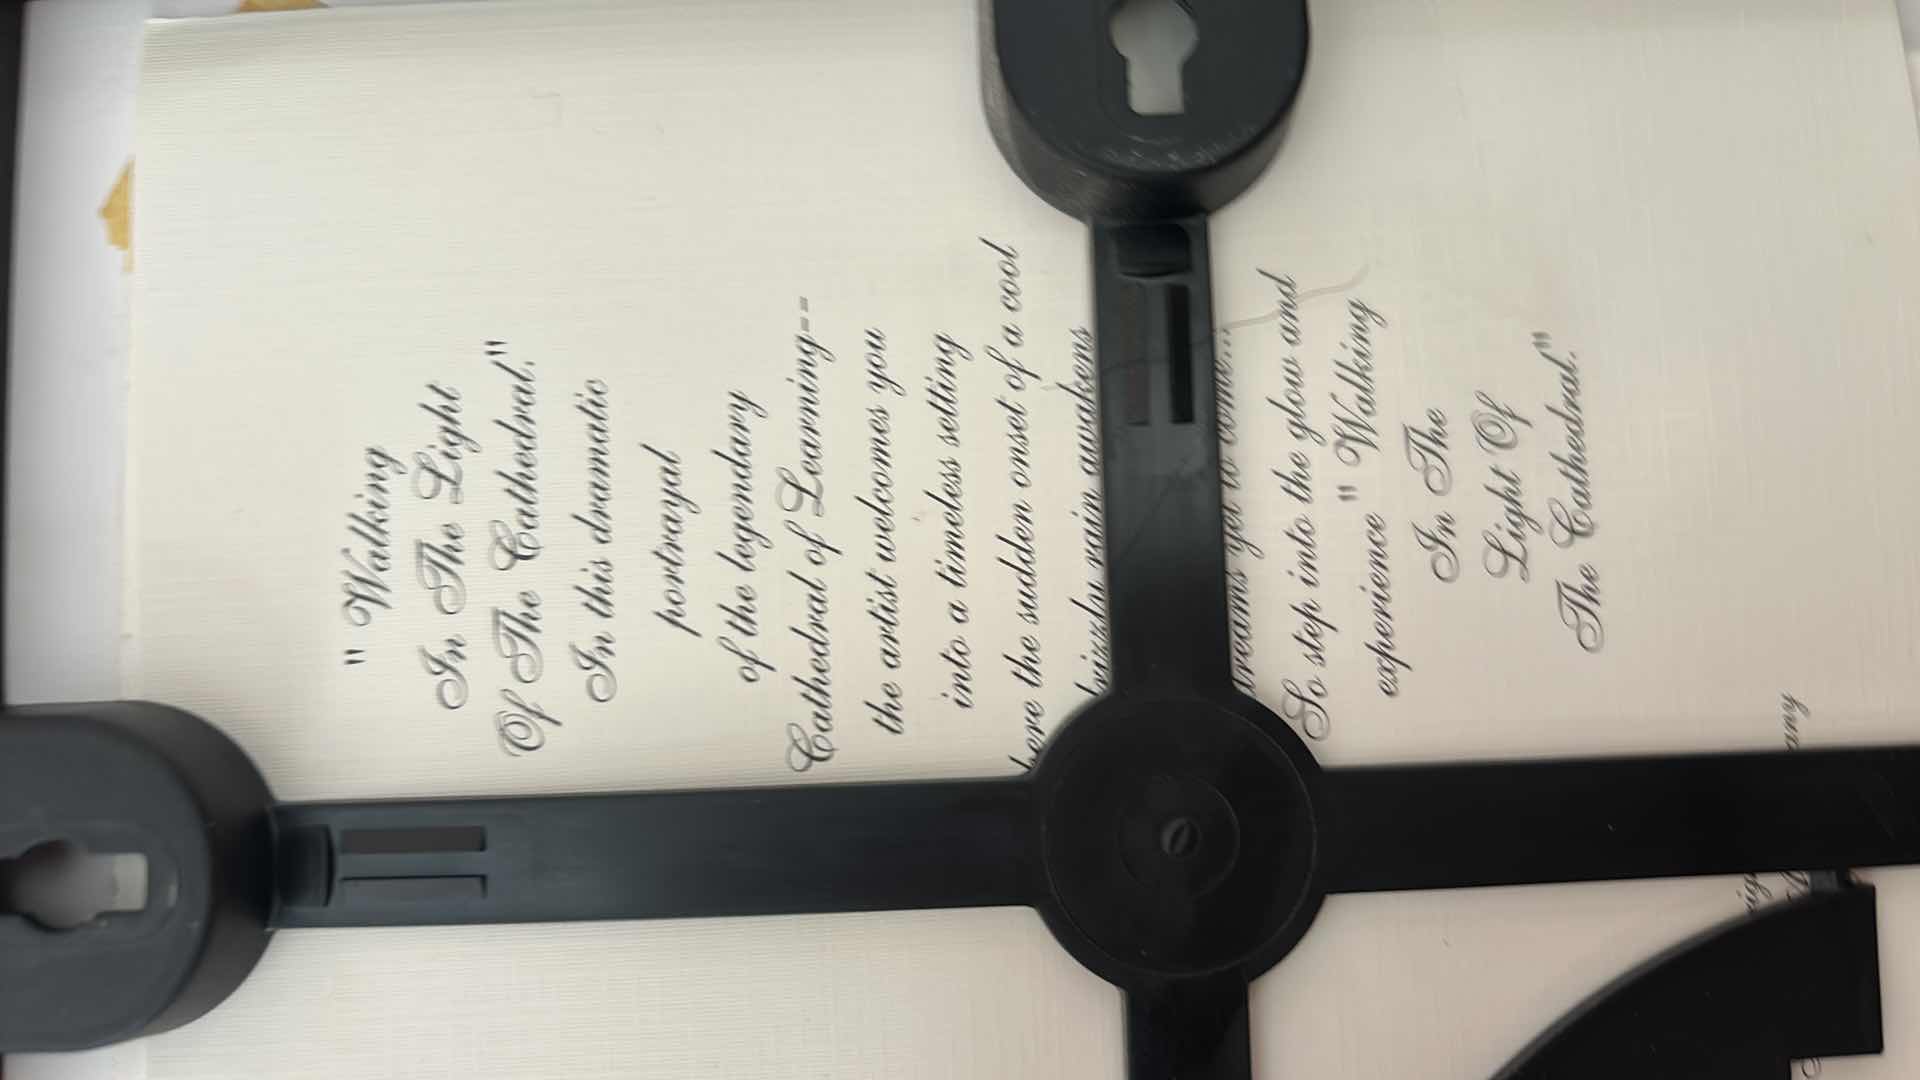 " Walking
In The Light
Of The Cathedral."
In this dramatic
portrayal
of the legendary
Cathedral of Learning--
the artist welcomes you
into a timeless setting
the sudden onset of a cool
rain awakens
yet to come...
So step into the glow and
experience " Walking
In The
Light Of
The Cathedral."